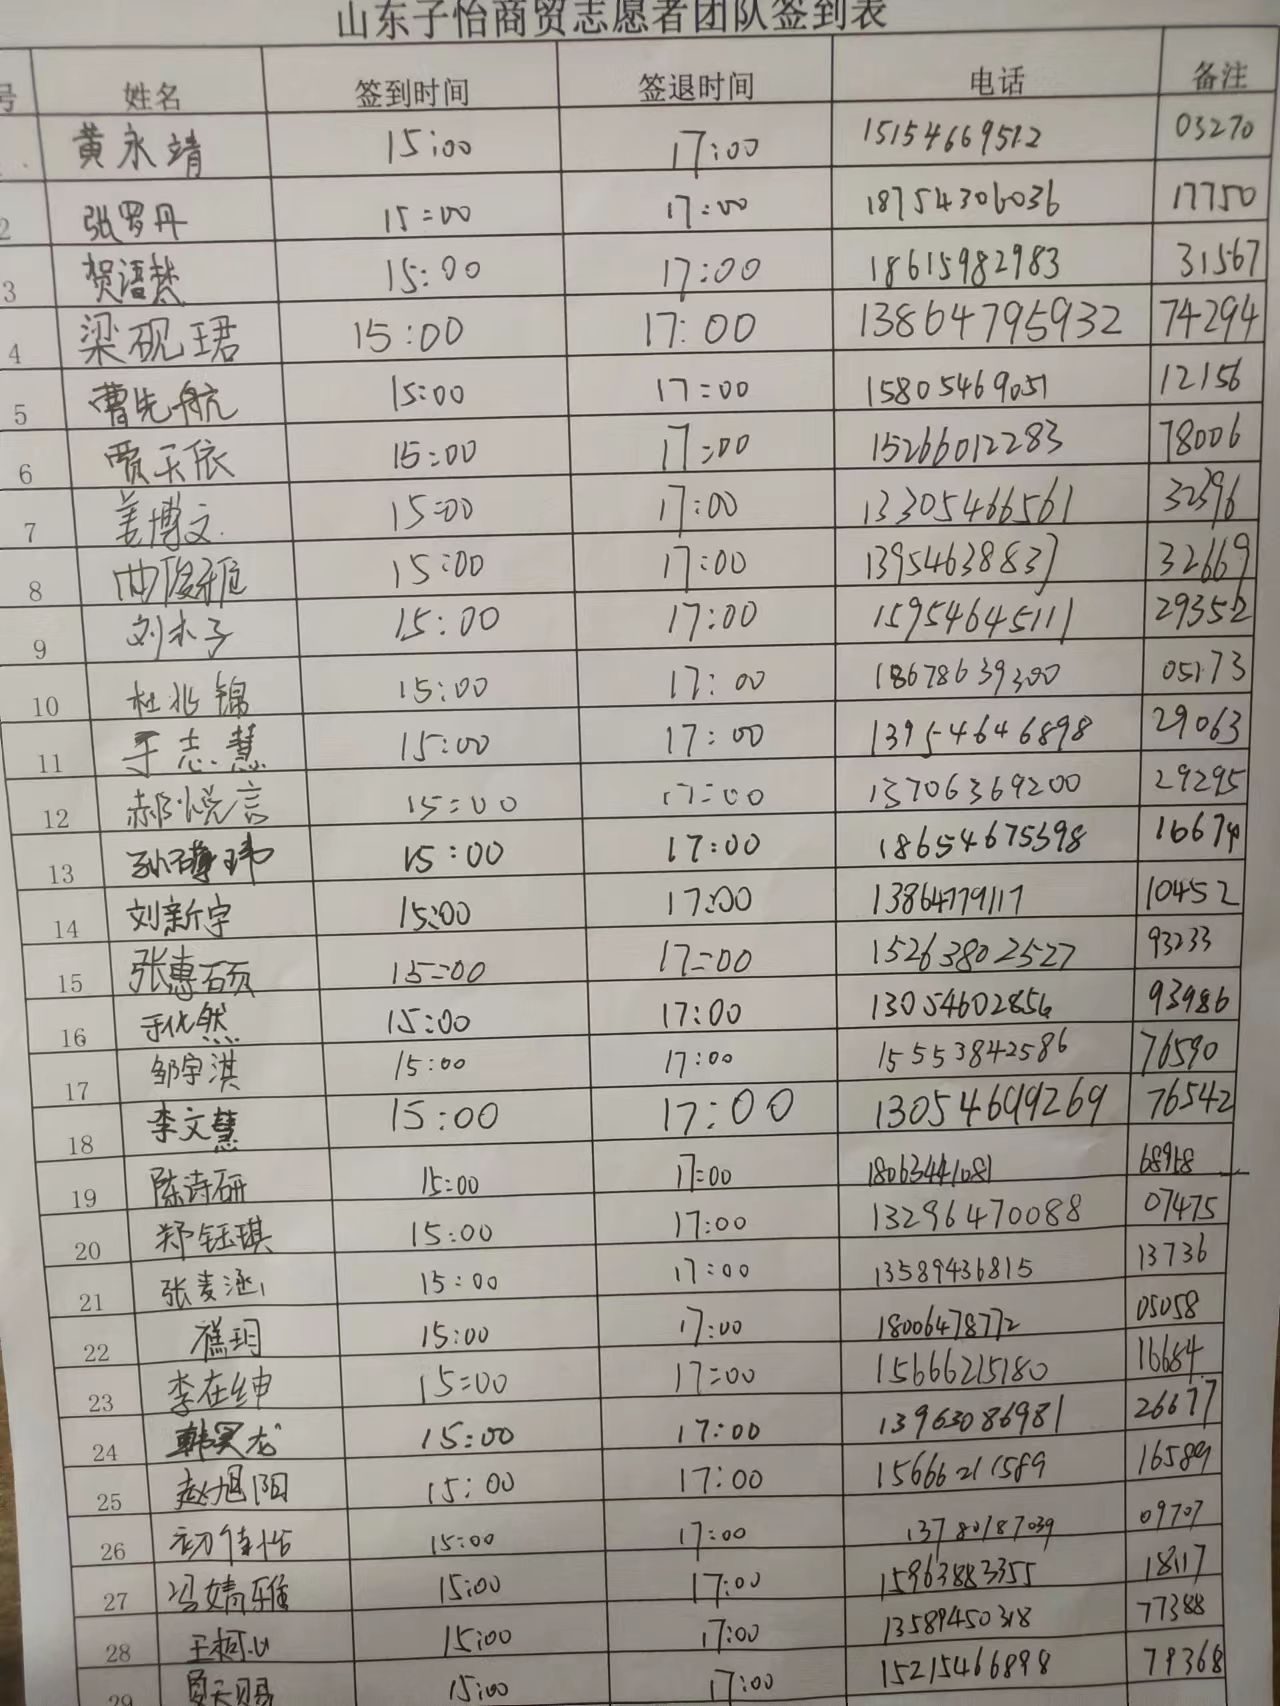 山东子怡商贸志愿者团队签到表
号 姓名 签到时间 签退时间 电话 备注
黄永靖 15:00 17:00 15154669512 03270
2 张罗丹 15:00 17:00 18754306036 17750
3 贺语梦 15:00 17:00 18615982983 31567
4 梁砚珺 15:00 17:00 13864795932 74294
5 曹先航 15:00 17:00 15805469051 12156
6 贾天依 15:00 17:00 15266012283 78006
7 姜博文 15:00 17:00 13305466561 32396
8 15:00 17:00 13954638837 32669
9 刘木子 15:00 17:00 15954645111 29352
10 杜兆锦 15:00 17:00 18678639300 05173
11 于志慧 15:00 17:00 13954646898 29063
12 郝悦言 15:00 17:00 13706369200 29295
13 15:00 17:00 18654675398 16674
14 刘新宇 15:00 17:00 13864779117 10452
15 张惠硕 15:00 17:00 15263802527 93233
16 于化然 15:00 17:00 13054602856 93986
17 邹宇淇 15:00 17:00 15553842586 76590
18 李文慧 15:00 17:00 13054699269 76542
19 陈诗研 15:00 17:00 18063441081 68968
20 郑钰琪 15:00 17:00 13296470088 07475
21 张麦涵 15:00 17:00 13589436815 13736
22 15:00 17:00 18006478772 05058
23 李在绅 15:00 17:00 15666215180 16684
24 15:00 17:00 13963086981 26677
25 赵旭阳 15:00 17:00 15666211589 16589
26 初佳怡 15:00 17:00 13780187039 09707
27 冯婧雅 15:00 17:00 15963883355 18117
28 王柯心 15:00 17:00 13589450318 77388
29 夏天赐 15:00 17:00 15215466898 79368